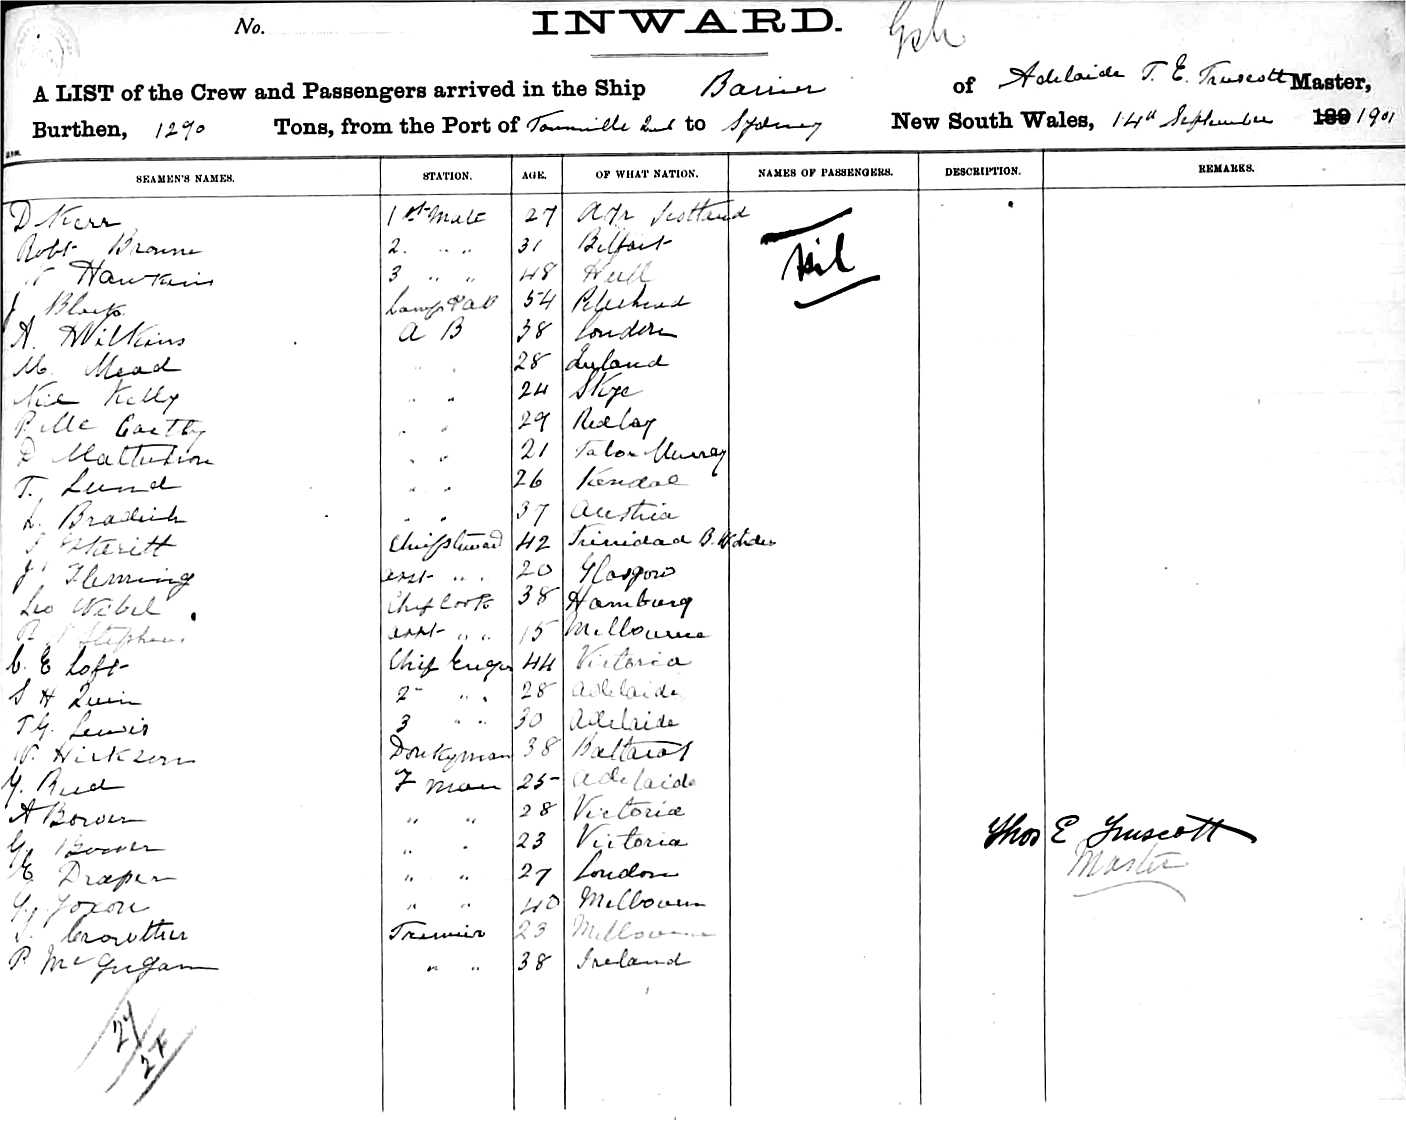 No.
INWARD.
A LIST of the Crew and Passengers arrived in the Ship Barrier of Adelaide T. E. Truscott Master,
Burthen, 1290 Tons, from the Port of Townsville Qnsld to Sydney New South Wales, 14th September 189 1901
SEAMEN'S NAMES. STATION. AGE. OF WHAT NATION. NAMES OF PASSENGERS. DESCRIPTION. REMARKS.
D Kerr 1st Mate 27 Ayr Scotland
Robt Browne 2 " " 31 Belfast Nil
Hawkins 3 " " 48 Hull
J Black Lamps & AB 54 Peterhead
A. Wilkins A B 38 London
M. Mead " " 28 Ireland
Neil Kelly " " 24 Skye
P McCarthy " " 29 Redcar
D Mathieson " " 21 Murray
T. Lund " " 26 Kendal
L. Bradich " " 37 Austria
Chief Steward 42 Trinidad B. W Indies
J Fleming asst " " 20 Glasgow
Leo Wabel Chef Cook 38 Hamburg
Stephens asst " " 15 Melbourne
C. E Loft Chief Enger 44 Victoria
S H Quin 2 " " 28 Adelaide
T G. Lewis 3 " " 30 Adelaide
W. Hickson Donkyman 38 Ballarat
G. Reed F man 25 Adelaide
A Bower " " 28 Victoria
G. Bower " " 23 Victoria Thos E Truscott
E Draper " " 27 London Master
G. Foxon " " 40 Melbourn
Crowther Trimmer 23 Melbourne
P McGuigan " " 38 Ireland
27
27